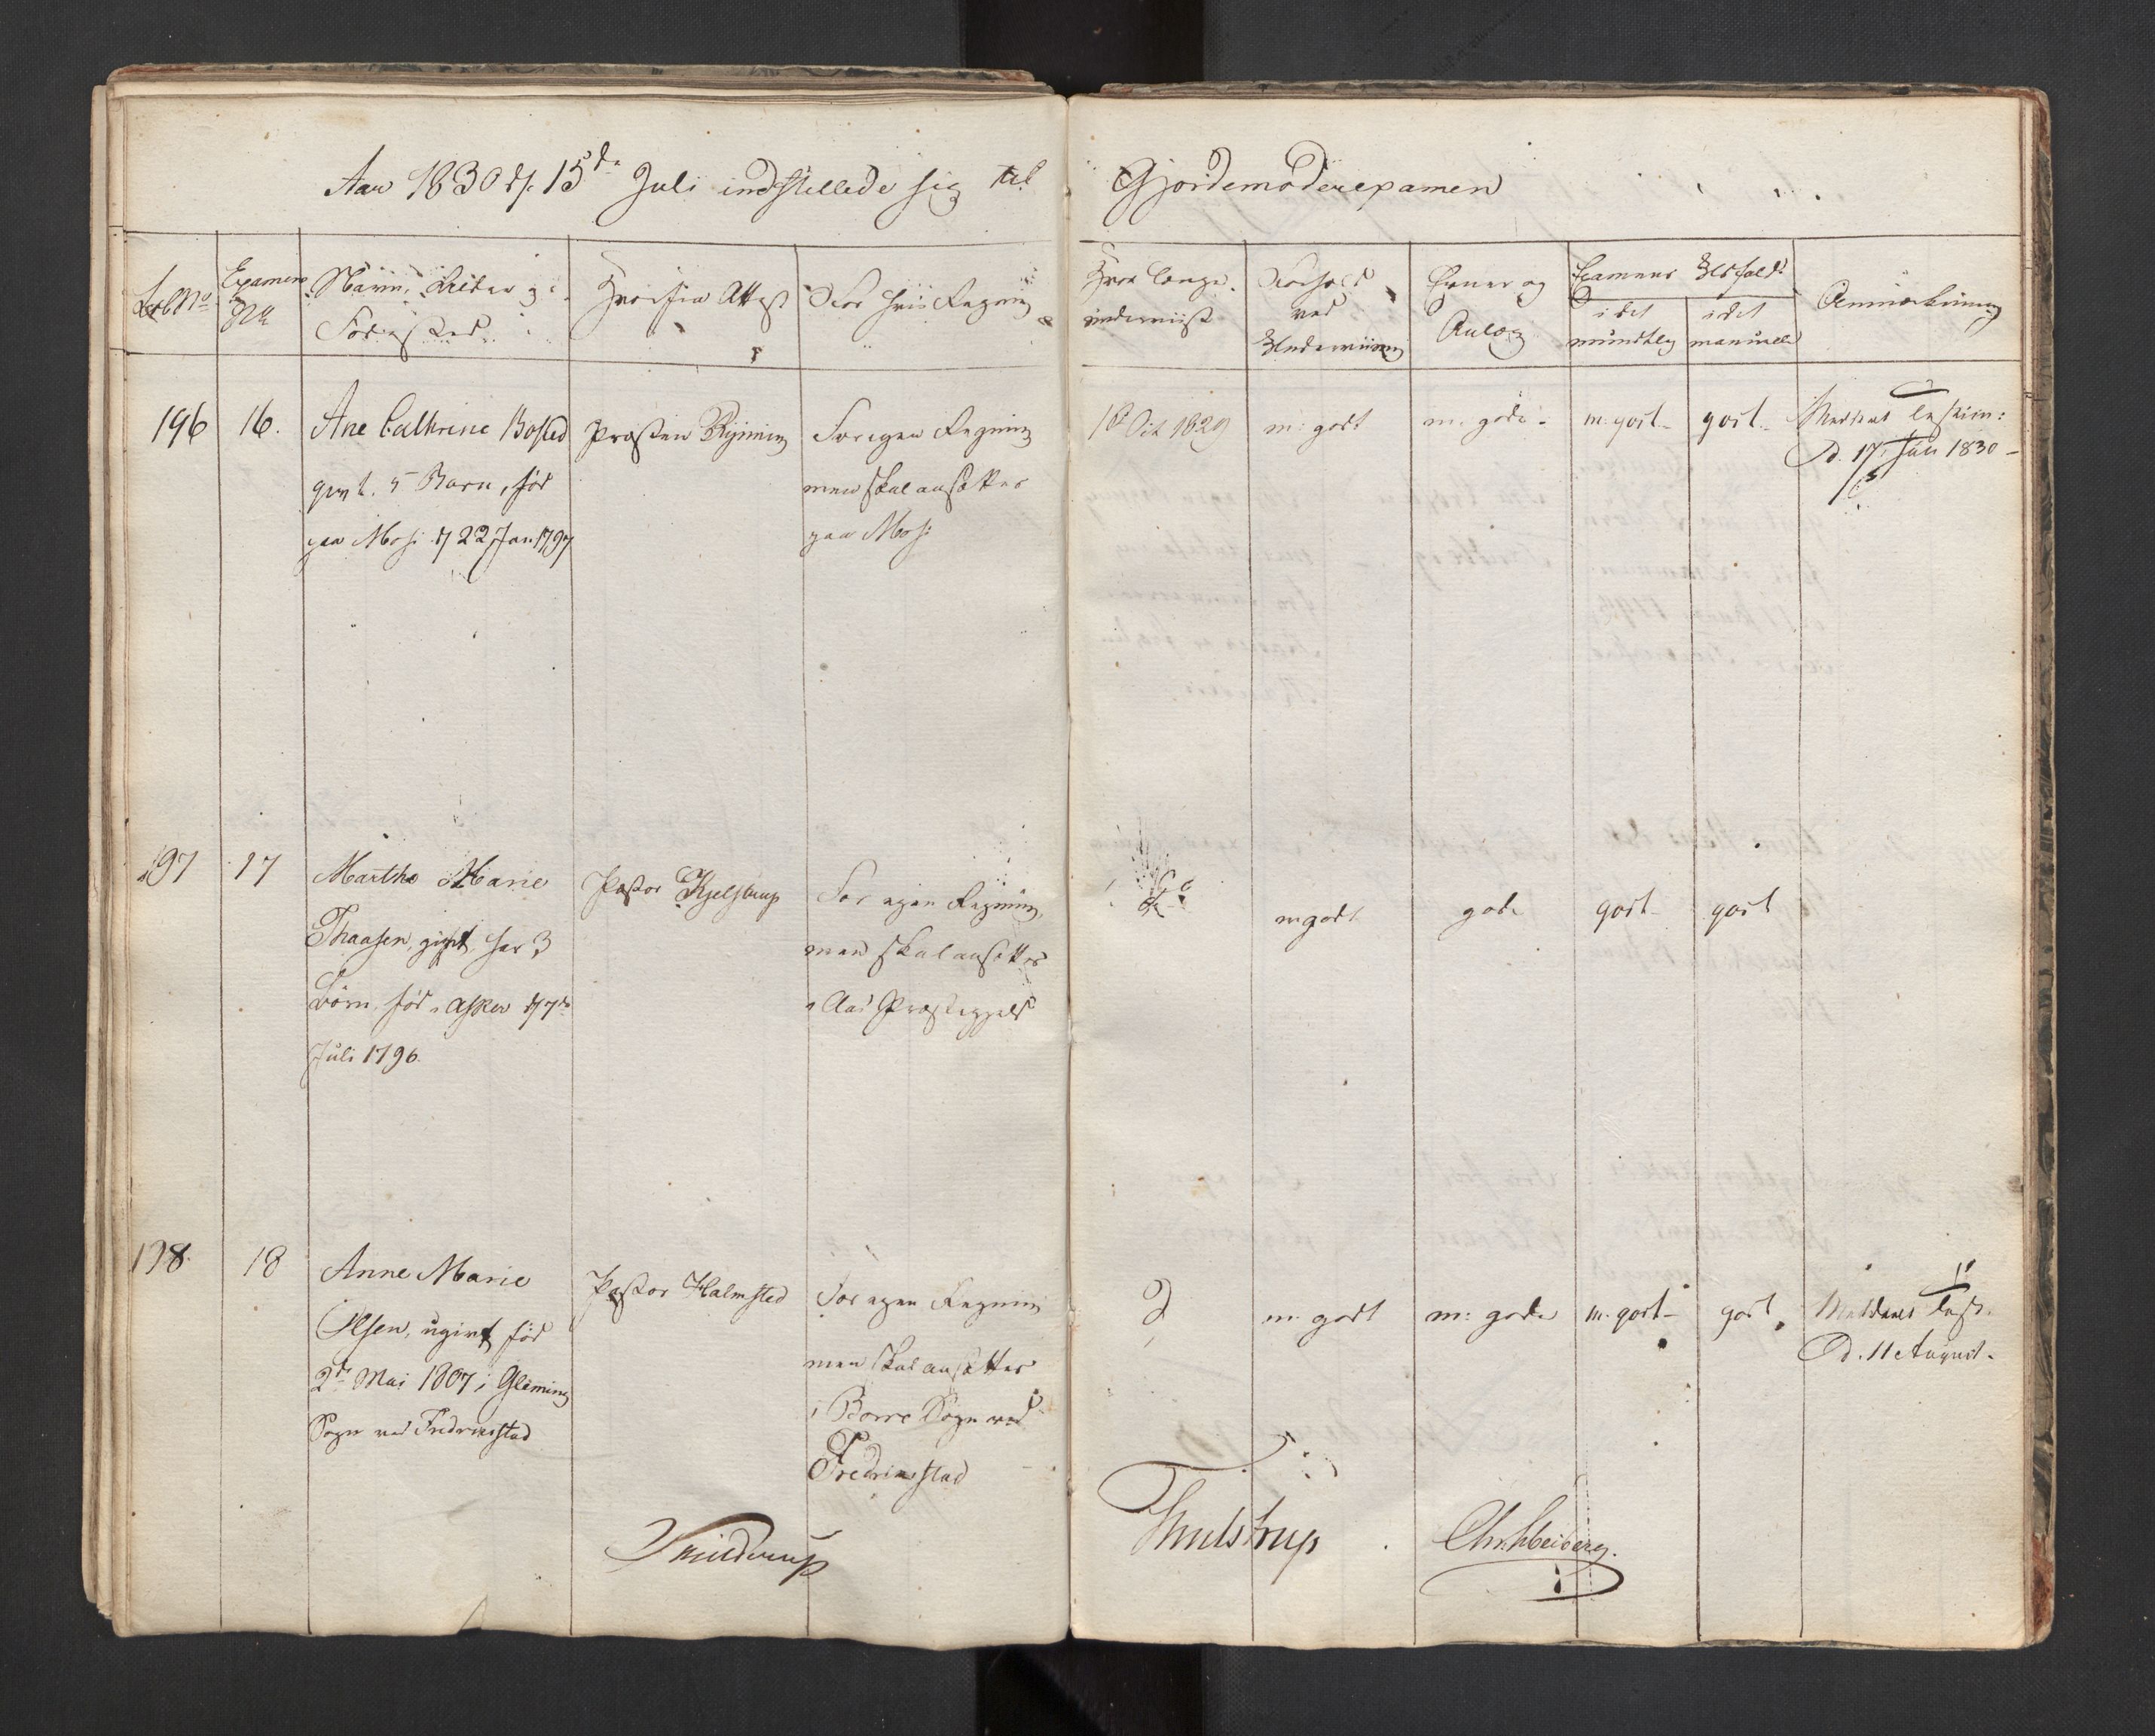 Aar 1830 d. 15de Juli indstillede sig til Gjordemoderexamen
Løb No
Examens No
Navn, Alder og
Fødested
Hvorfra Attest
For hvis Regning
Hvor længe
underviist
Forhold
ved
Underviisning
Evner og
Anlæg
Examens Udfald
i det
mundtlig
i det
manuelle
Anmærkning
196
16.
Ane Cathrine Bosted
givt. 5 Børn, fød
paa Moss d 22 Jan 1797
Præsten Rynning
For egen Regning
men skal ansættes
paa Moss
1ste Oct 1829
m: godt
m. gode
m. godt
godt
d. 17. Juli 1830
197
17
Marthe Marie
Thaasen, gift, har 3
Børn, fød i Asker d 7de
Juli 1796.
Pastor Kjelstrup
For egen Regning,
men skal ansættes
i Aas Præstegjeld
m godt
gode
godt
godt
198
18
Anne Marie
Olsen, ugivt, fød
2den Mai 1807 i Glemming
Sogn ved Fredriksstad
Pastor Halmsted
For egen Regning
men skal ansættes
i Borre Sogn ved
Fredriksstad
m. godt
m: gode
m. godt
godt
d. 11 August.
Thulstrup
Chr. Heiberg.